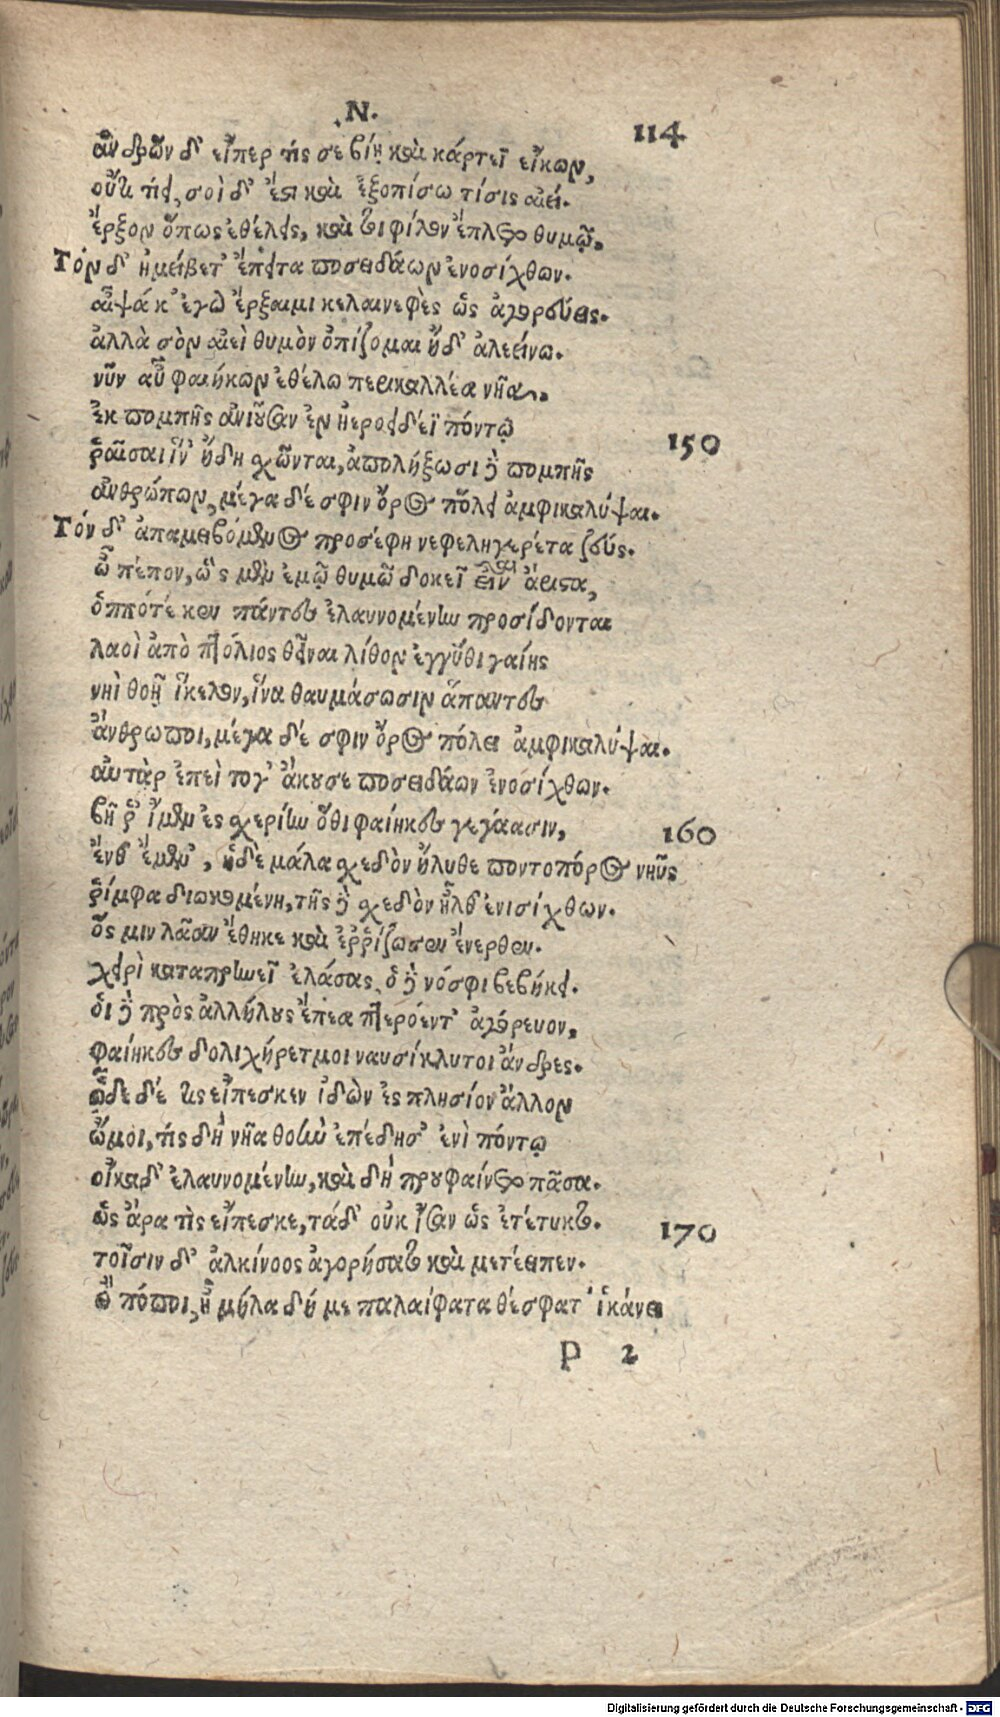 N.
114
ἀνδρῶν δ' εἴπερ τίς σε βίῃ καὶ κάρτεϊ εἴκων,
οὔτι τίει, σοὶ δ' ἔστι καὶ ἐξοπίσω τίσις αἰεί.
ἔρξον ὅπως ἐθέλεις, καί τοι φίλον ἔπλετο θυμῷ.
Τὸν δ' ἠμείβετ' ἔπειτα ποσειδάων ἐνοσίχθων.
αἶψά κ' ἐγὼ ἔρξαιμι κελαινεφὲς ὡς ἀγορεύεις.
ἀλλὰ σὸν αἰεὶ θυμὸν ὀπίζομαι ἠδ' ἀλεείνω.
νῦν αὖ φαιήκων ἐθέλω περικαλλέα νῆα.
ἐκ πομπῆς ἀνιοῦσαν ἐν ἠεροειδέϊ πόντῳ 150
ῥαῖσαι ἵν' ἤδη σχῶνται, ἀπολήξωσι δὲ πομπῆς
ἀνθρώπων, μέγα δέ σφιν ὄρος πόλει ἀμφικαλύψαι.
Τόν δ' ἀπαμειβόμενος προσέφη νεφεληγερέτα ζεύς.
ὦ πέπον, ὣς μὲν ἐμῷ θυμῷ δοκεῖ εἶν' ἄριστα,
ὁππότε κεν πάντες ἐλαυνομένην προσίδονται
λαοὶ ἀπὸ πτόλιος θεῖναι λίθον ἐγγύθι γαίης
νηῒ θοῇ ἴκελον, ἵνα θαυμάσωσιν ἅπαντες
ἄνθρωποι, μέγα δέ σφιν ὄρος πόλει ἀμφικαλύψαι.
αὐτὰρ ἐπεὶ τογ' ἄκουσε ποσειδάων ἐνοσίχθων.
βῆ ῥ' ἴμεν ἐς σχερίην ὅθι φαίηκες γεγάασιν, 160
ἔνθ' ἔμεν', ἡδὲ μάλα σχεδὸν ἤλυθε ποντοπόρος νηῦς
ῥίμφα διωκομένη, τῆς δὲ σχεδὸν ἦλθ' ἐνισίχθων.
ὅς μιν λᾶαν ἔθηκε καὶ ἐῤῥίζωσεν ἔνερθεν.
χειρὶ καταπρηνεῖ ἐλάσας, ὁ δὲ νόσφι βεβήκει.
οἱ δὲ πρὸς ἀλλήλους ἔπεα πτερόεντ' ἀγόρευον,
φαίηκες δολιχήρετμοι ναυσίκλυτοι ἄνδρες.
ὧδε δέ τις εἴπεσκεν ἰδὼν ἐς πλησίον ἄλλον
ὤμοι, τίς δὴ νῆα θοὴν ἐπέδησ' ἐνὶ πόντῳ
οἴκαδ' ἐλαυνομένην, καὶ δὴ προυφαίνετο πᾶσα.
ὣς ἄρα τὶς εἴπεσκε, τάδ' οὐκ ἴσαν ὡς ἐτέτυκτο. 170
τοῖσιν δ' ἀλκίνοος ἀγορήσατο καὶ μετέειπεν.
ὢ πόποι, ἦ μάλα δή με παλαίφατα θέσφατ' ἱκάνει
P 2
Digitalisierung gefördert durch die Deutsche Forschungsgemeinschaft - DFG